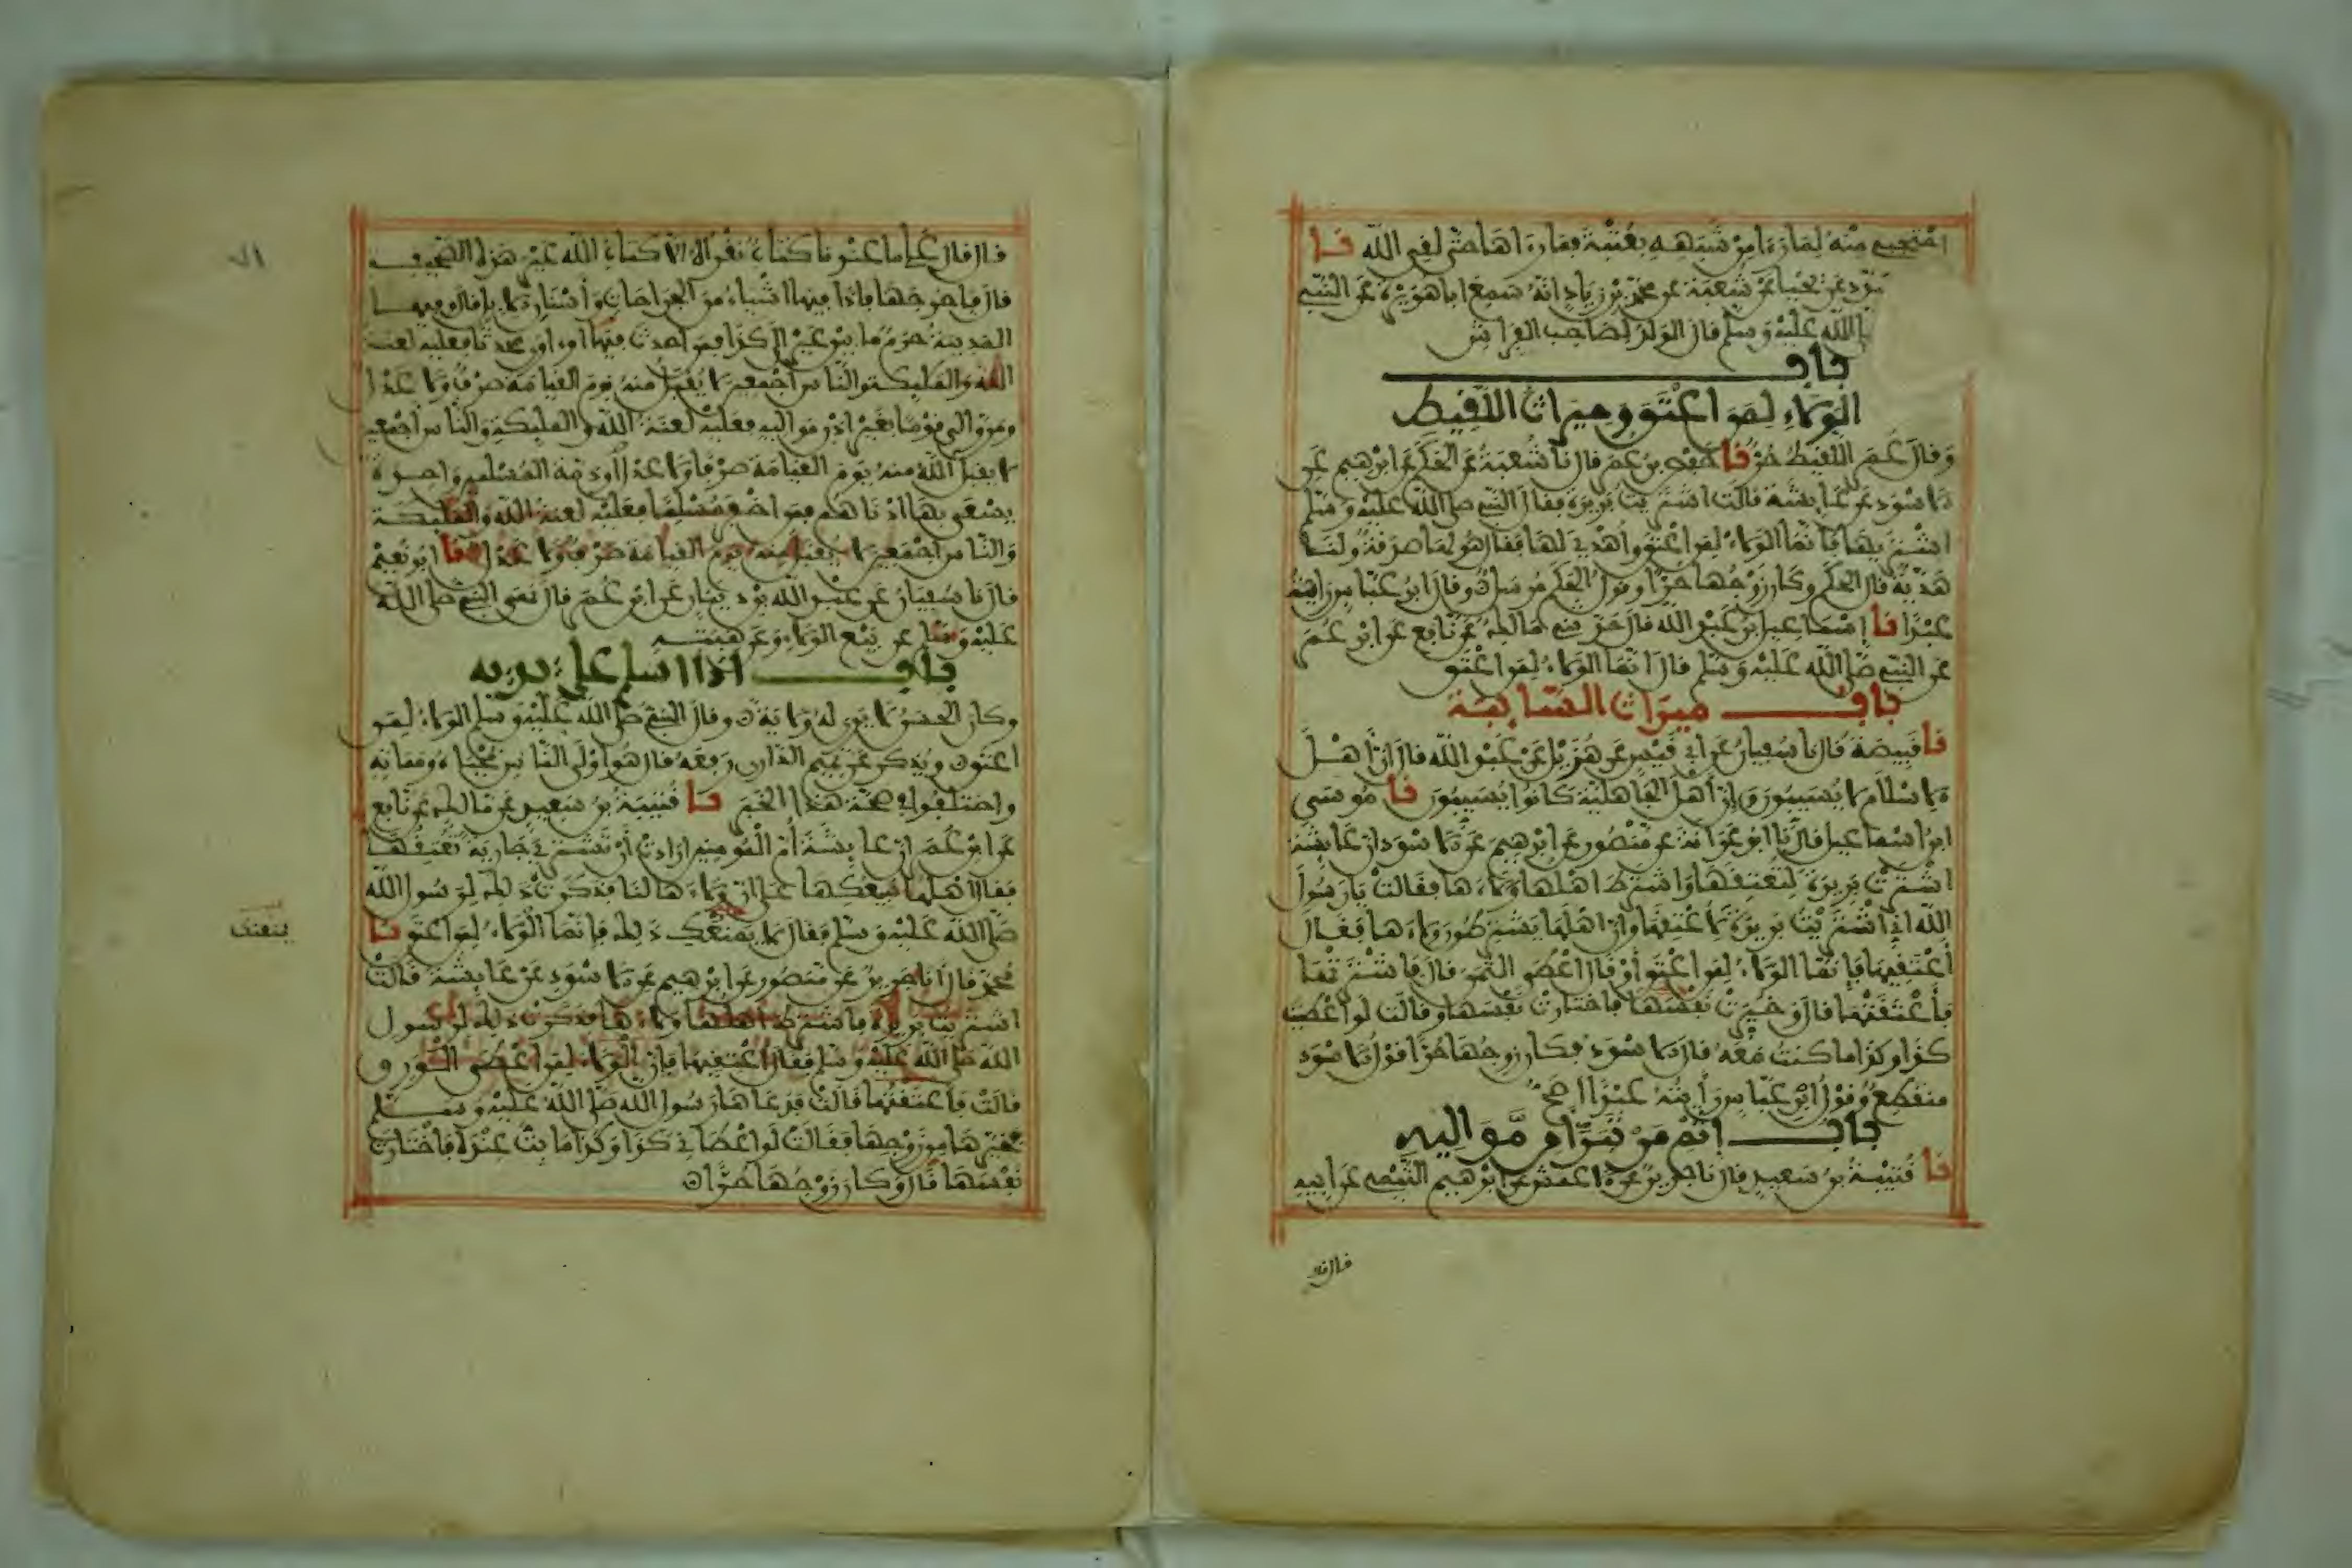 احتجبي منه لما رءا من شبهه بعتبة فما رءاها حتى لقي الله نا
عن يحيى عن شعبة عن محمد بن زياد انه سمع ابا هريرة عن النبي
الله عليه وسلم قال الولد لصاحب الفراش
باب
الولاء لمن اعتق وميراث اللقيط
وقال عمر اللقيط حر نا حفص بن عمر قال نا شعبة عن الحكم عن ابرهيم عن
الاسود عن عايشة قالت اشتريت بريرة فقال النبي صلى الله عليه وسلم
اشتريها فانما الولاء لمن اعتق واهدي لها فقال هو لها صدقة ولنا
هدية قال الحكم وكان زوجها حرا وقول الحكم مرسل وقال ابن عباس رايته
عبدا نا إسماعيل بن عبد الله قال حدثني مالك عن نافع عن ابن عمر
عن النبي صلى الله عليه وسلم قال انما الولاء لمن اعتق
باب ميراث السايبة
نا قبيصة قال نا سفيان عن ابي قيس عن هزيل عن عبد الله قال ان اهل
الاسلام لا يسيبون وان أهل الجاهلية كانوا يسيبون نا موسى
ابن اسماعيل قال نا ابو عوانة عن منصور عن ابرهيم عن الاسود ان عايشة
اشترت بريرة لتعتقها واشترط اهلها ولاءها فقالت يا رسول
الله اني اشتريت بريرة لأعتقها وان اهلها يشترطون ولاءها فقال
أعتقيها فإنما الولاء لمن اعتق أو قال اعطى الثمن قال فاشترتها
فأعتقتها قال وخيرت نفسها فاختارت نفسها وقالت لو اعطيت
كذا وكذا ما كنت معه قال الاسود فكان زوجها حرا قول الاسود
منقطع وقول ابن عباس رأيته عبدا اصح
باب إثم من تبرأ من مواليه
نا قتيبة بن سعيد قال نا جرير عن الاعمش عن ابرهيم التيمي عن ابيه
قال قال
قال قال علي ما عندنا كتاب نقرأه الا كتاب الله غير هذه الصحيفة
قال فاخرجها فاذا فيها اشياء من الجراحات وأسنان الابل قال وفيها
المدينة حرم ما بين عير الى كذا فمن احدث فيها او اوى محدثا فعليه لعنة
الله والمليكة والناس أجمعين لا يقبل منه يوم القيامة صرف ولا عدل
ومن والى قوما بغير اذن مواليه فعليه لعنة الله والمليكة والناس أجمعين
لا يقبل الله منه يوم القيامة صرفا ولا عدلا وذمة المسلمين واحدة
يسعى بها ادناهم فمن اخفر مسلما فعليه لعنة الله والمليكة
والناس أجمعين لا يقبل منه يوم القيامة صرف ولا عدل نا ابو نعيم
قال نا سفيان عن عبد الله بن دينار عن ابن عمر قال نهى النبي صلى الله
عليه وسلم عن بيع الولاء وعن هبته
باب اذا اسلم على يديه
وكان الحسن لا يرى له ولاية وقال النبي صلى الله عليه وسلم الولاء لمن
اعتق ويذكر عن تميم الداري رفعه قال هو اولى الناس بمحياه ومماته
واختلفوا في صحة هذا الخبر نا قتيبة بن سعيد عن مالك عن نافع
عن ابن عمر ان عايشة أم المومنين ارادت أن تشتري جارية تعتقها
فقال اهلها نبيعكها على ان ولاءها لنا فذكرت ذلك لرسول الله
صلى الله عليه وسلم فقال لا يمنعك ذلك فإنما الولاء لمن اعتق نا
محمد قال أنا جرير عن منصور عن ابرهيم عن الاسود عن عايشة قالت
اشتريت بريرة فاشترط اهلها ولاءها فذكرت ذلك لرسول
الله صلى الله عليه وسلم فقال اعتقيها فإن الولاء لمن اعطى الورق
قالت فاعتقتها قالت فدعاها رسول الله صلى الله عليه وسلم
فخيرها من زوجها فقالت لو اعطاني كذا وكذا ما بت عنده فاختارت
نفسها قال وكان زوجها حرا